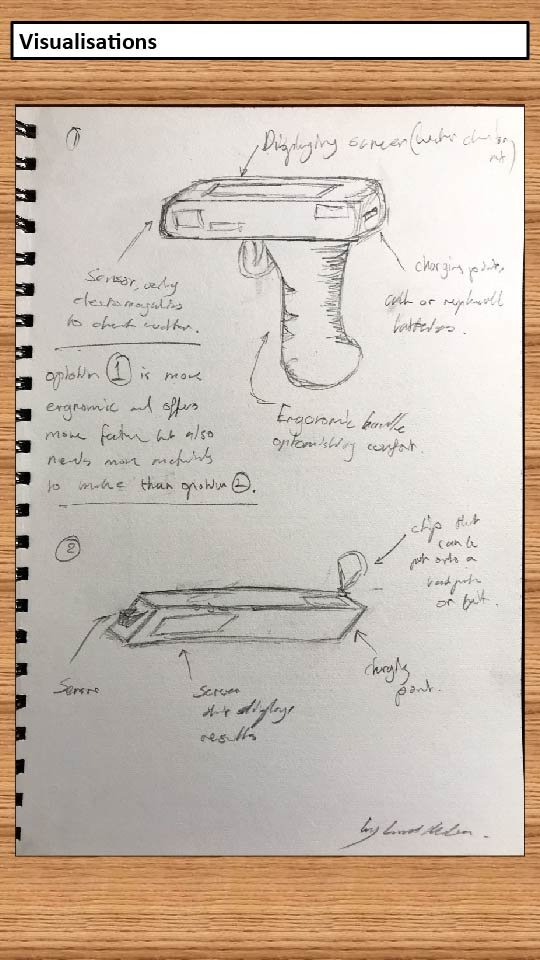 Visualisations
1
Displaying screen (water clean or not)
Sensor, using
electromagnetics
to check water.
charging point,
or
batteries.
option 1 is more
ergnomic and offers
more feature but also
needs more materials
to make than option 2.
Ergonomic handle
comfort.
2
clips that
can be
put onto a
backpack
or belt.
Sensor
Screen
that displays
results
charging
point.
by